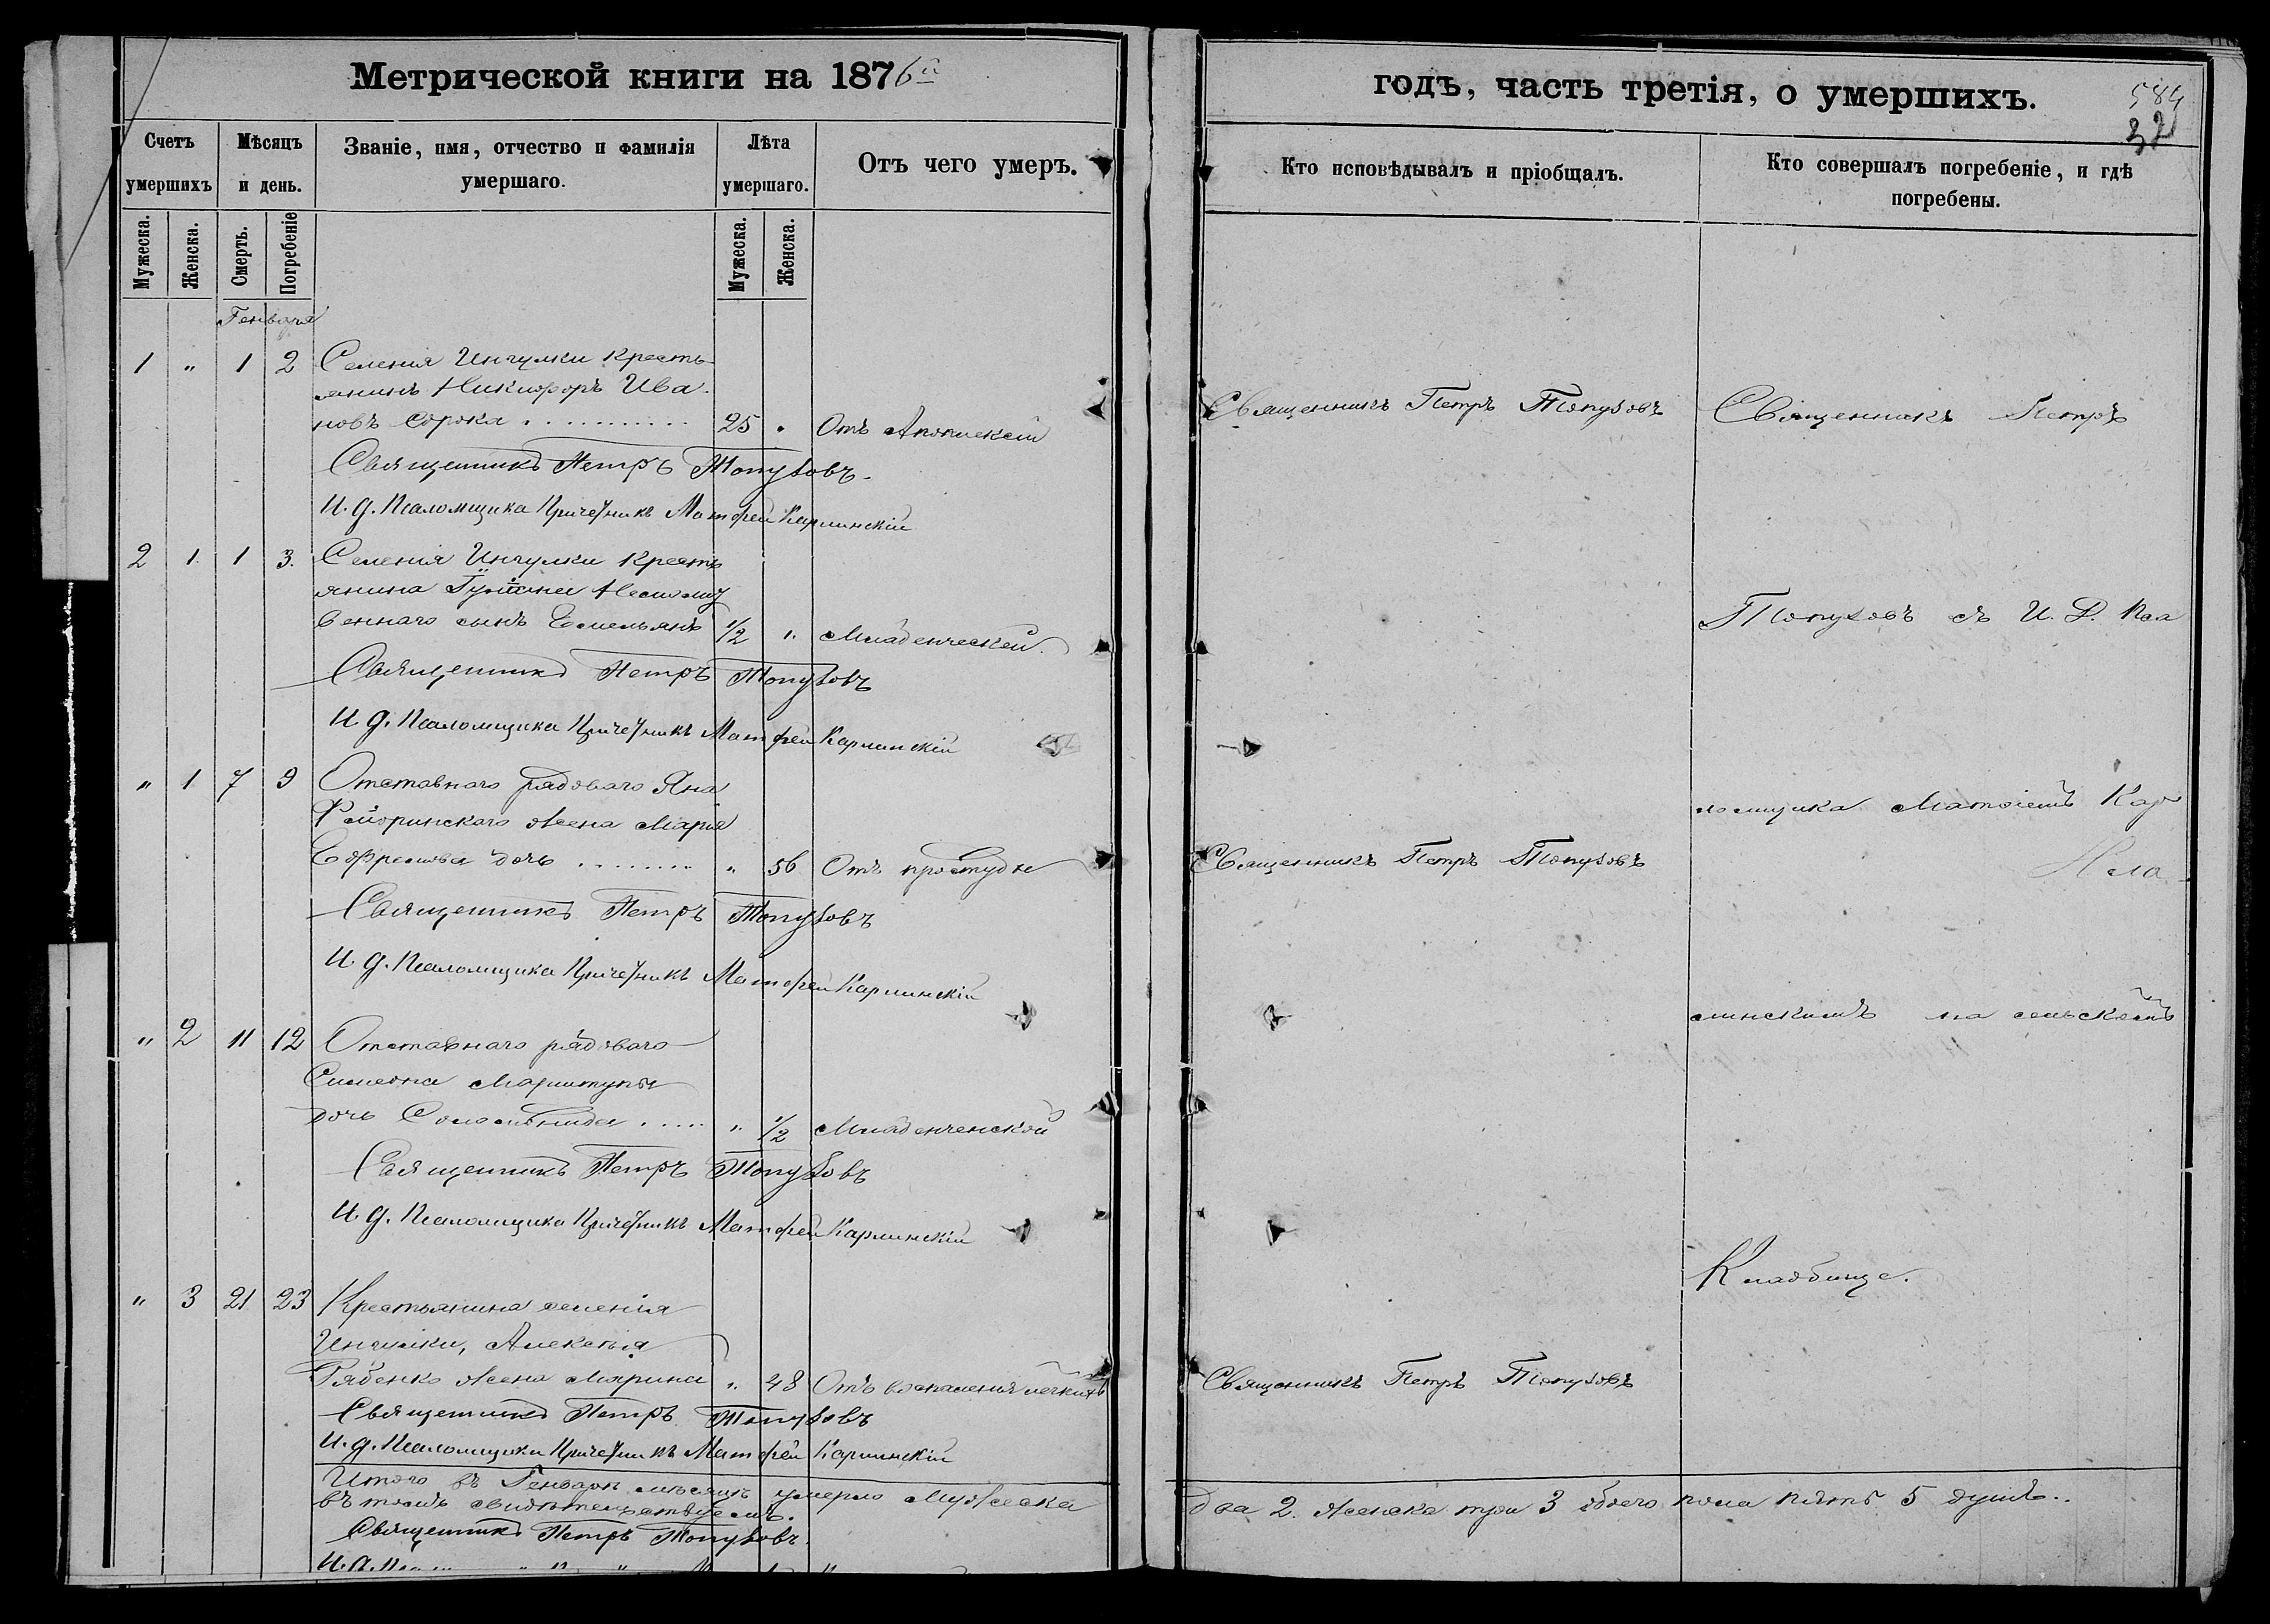 Метрической книги на 1876й
Счетъ умершихъ
Мѣсяцъ и день.
Званіе, имя, отчество и фамилія умершаго.
Лѣта умершаго.
Отъ чего умеръ.
Мужеска.
Женска.
Смерть.
Погребеніе
Мужеска.
Женска.
Генваря
1 " 1 2 Селенія Ингулки Кресть-
янинъ Никифоръ Ива-
новъ Сорока . . . . . . . . . . . 25 " Отъ Апоплексіи
Священникъ Петръ Топузовъ.
И. д. Псаломщика Причетникъ Матфей Карлинскій
2 " 1 3. Селенія Ингулки Кресть
янина
веннаго сынъ Емельянъ 1/2 " Младенческой.
Священникъ Петръ Топузовъ
И. д. Псаломщика Причетникъ Матфей Карлинскій
" 1 7 9 Отставнаго рядоваго Яна
жена Марія
Ефремова дочь . . . . . . . . . " 56 Отъ простуды
Священникъ Петръ Топузовъ
И. д. Псаломщика Причетникъ Матфей Карлинскій
" 2 11 12 Отставнаго рядоваго
Симеона
дочь Соломонида . . . . . " 1/2 Младенческой
Священникъ Петръ Топузовъ
И. д. Псаломщика Причетникъ Матфей Карлинскій
" 3 21 23 Крестьянина селенія
Ингулки, Алексѣя
Рябенко жена Марина " 48 Отъ воспаленія легкихъ
Священникъ Петръ Топузовъ
И. д. Псаломщика Причетникъ Матфей Карлинскій
Итого въ Генварѣ мѣсяцѣ умерло мужеска
въ томъ свидѣтельствуемъ.
Священникъ Петръ Топузовъ.
годъ, часть третія, о умершихъ.
584
32
Кто исповѣдывалъ и пріобщалъ.
Кто совершалъ погребеніе, и гдѣ погребены.
Священникъ Петръ Топузовъ
Священникъ Петръ
Топузовъ съ И. Д. Пса
ломщика Матѳіемъ Кар
Священникъ Петръ Топузовъ
Кла
линскимъ на сельскомъ
Кладбище.
Священникъ Петръ Топузовъ
два 2. женска три 3 обоего пола пять 5 душъ..